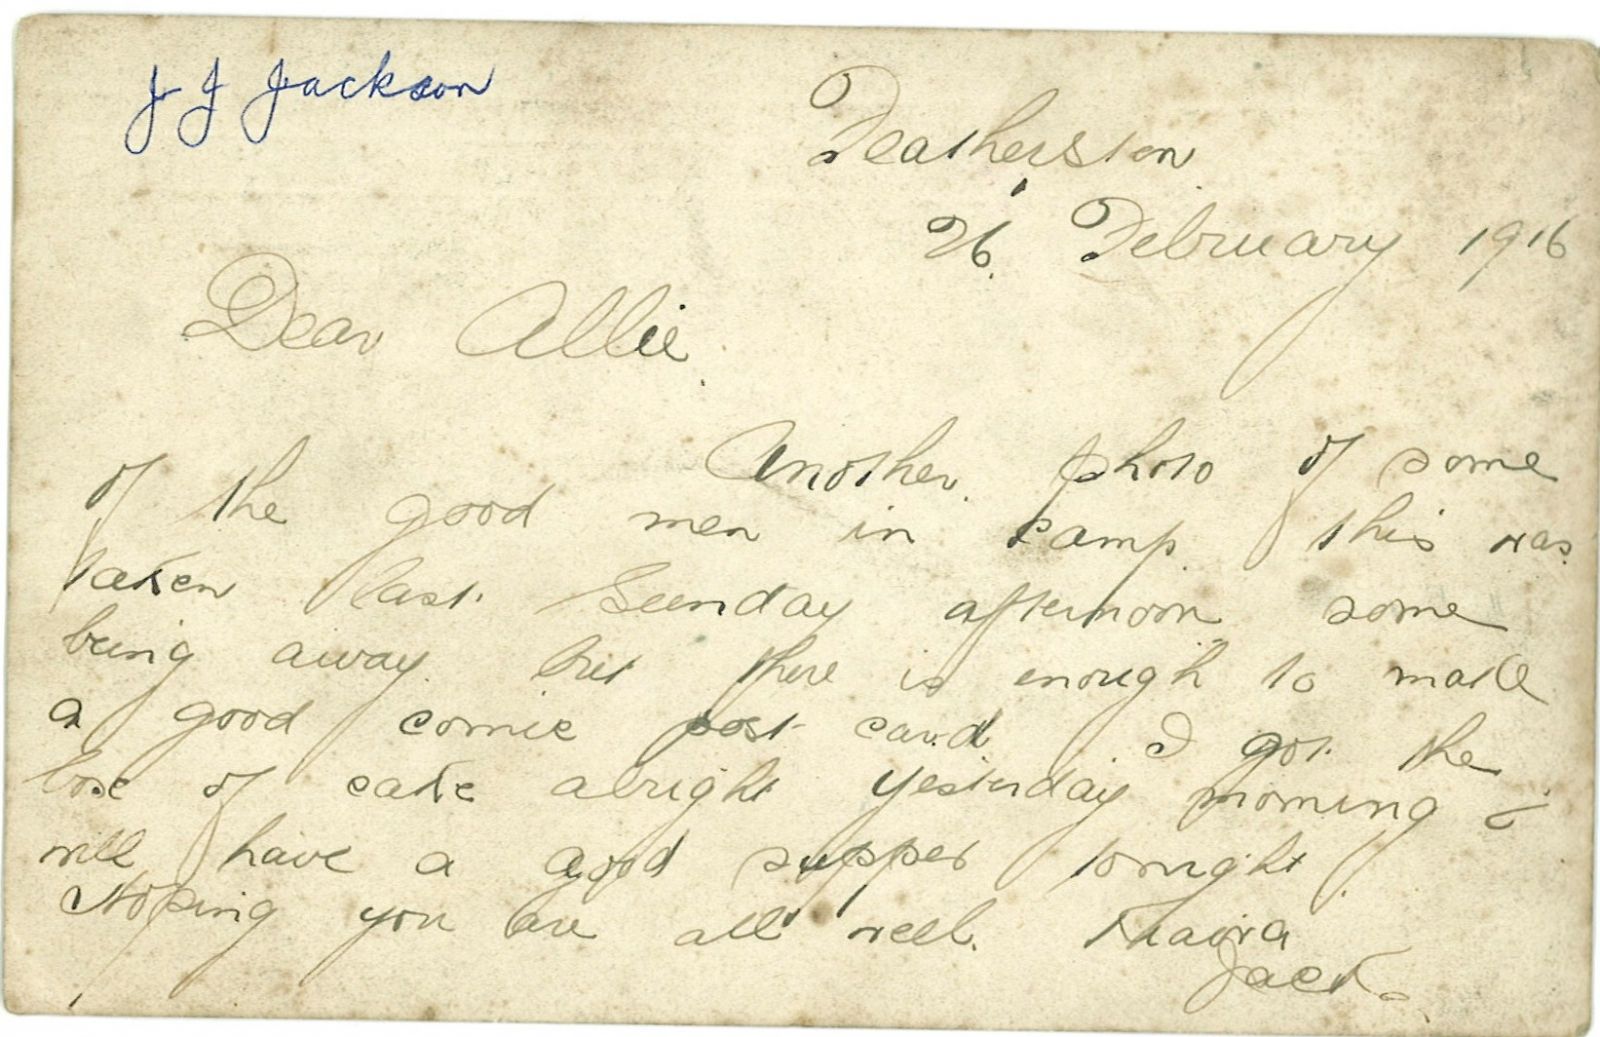 J J Jackson
Featherston
26. February 1916
Dear Allie.
Another photo of some
of the good men in camp this was
taken last Sunday afternoon some
being away. but there is enough to make
a good comic post card. I got the
box of cake alright yesterday morning &
will have a good supper tonight.
Hoping you are all well. Kiaora
Jack.